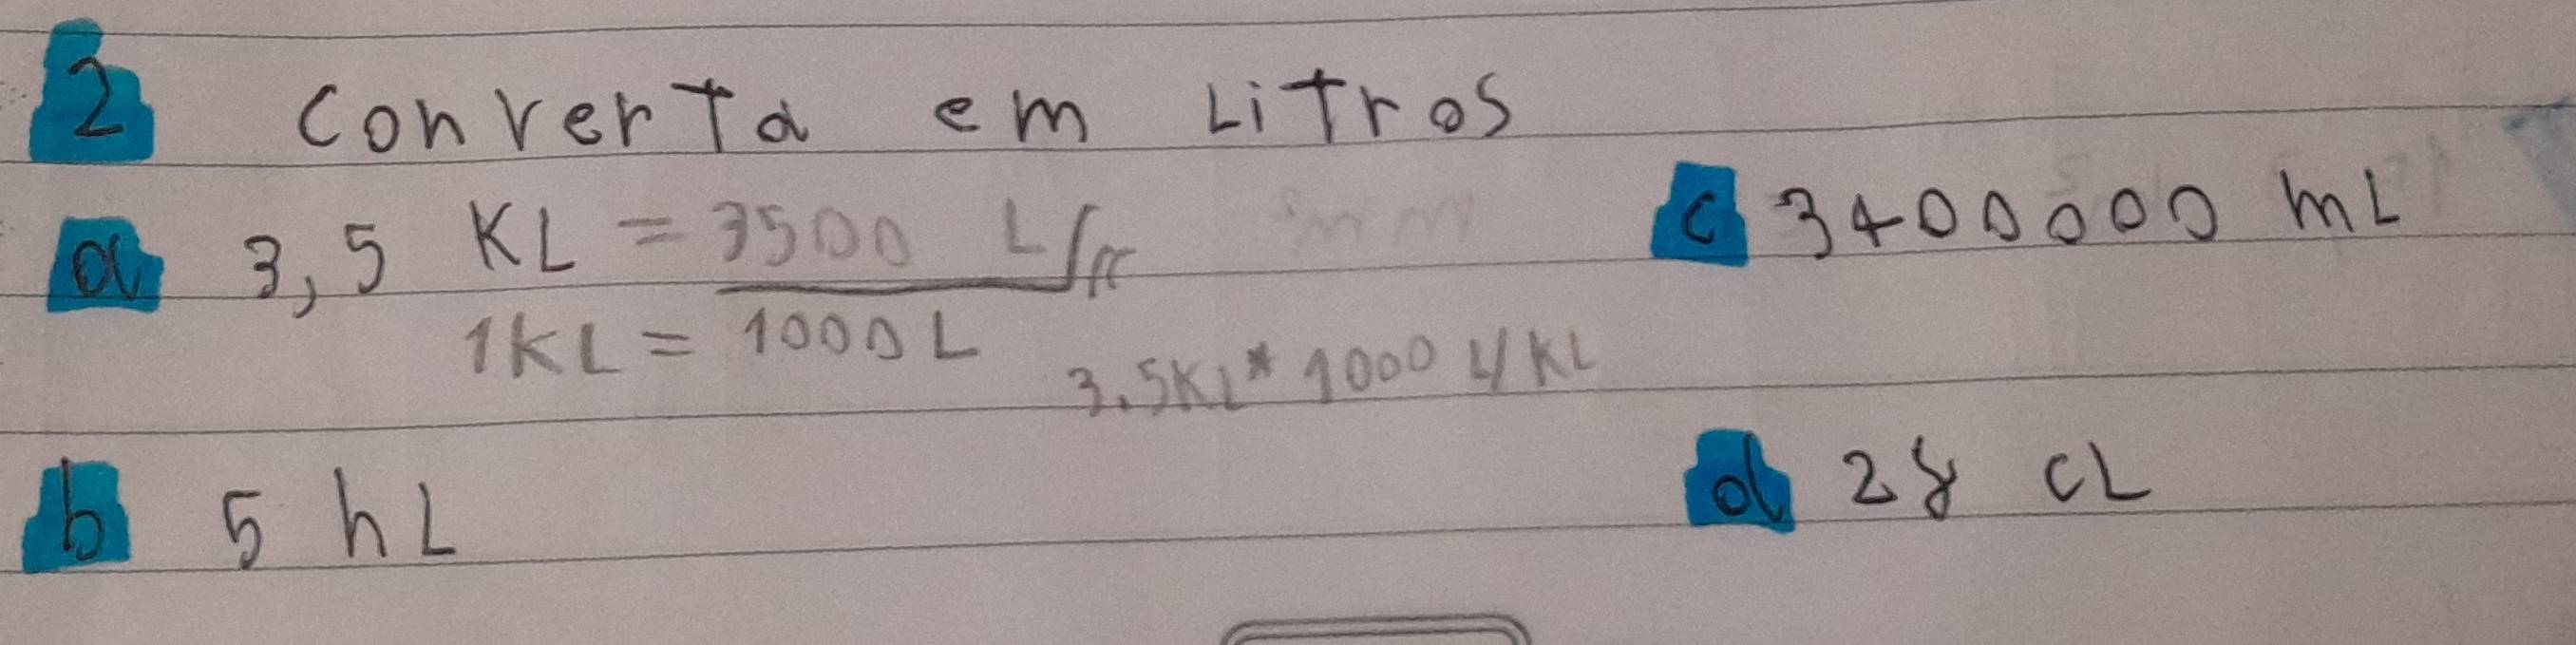 2 Converta em Litros
a 3,5 KL = 3500 L
1KL = 1000 L 3.5KL * 1000 L/KL
b 5 hL
c 3400000 mL
d 28 cL